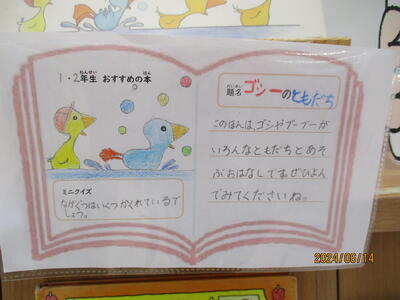 1・2年生 おすすめの本
ねんせい ほん
ミニクイズ
ながぐつはいくつかくれているで
しょう。
だいめい
題名 ゴシーのともだち
このほんは、ゴシやブーブーが
いろんなともだちとあそ
ぶおはなしです。ぜひよん
でみてくださいね。
2024/06/14